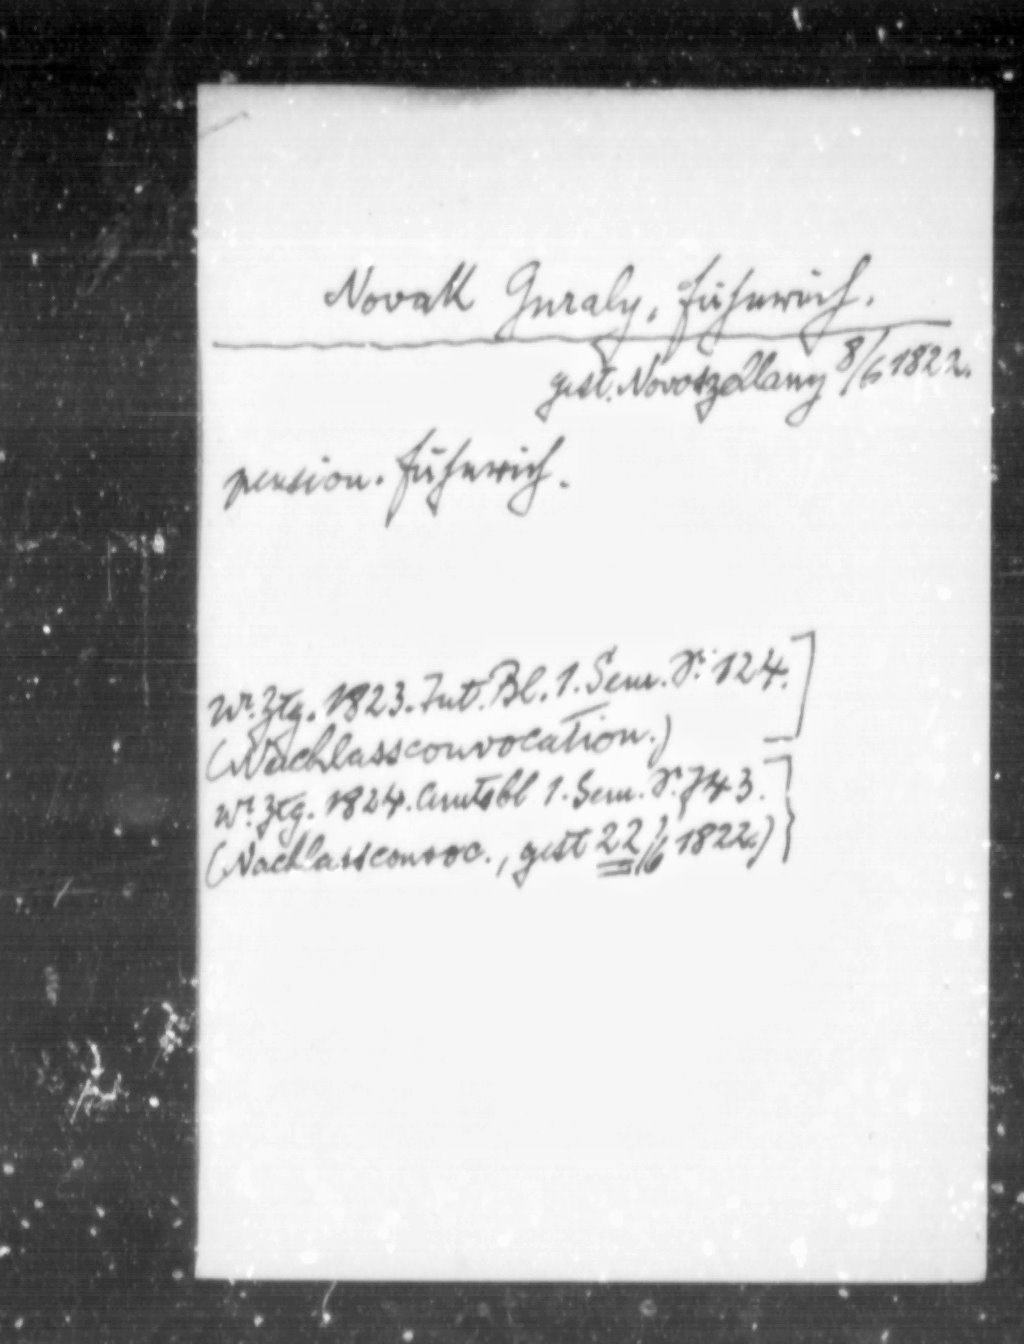 Novak Guraly, Fähnrich.
gest. Novoszellany 8/6 1822.
pension. Fähnrich.
Wr. Ztg. 1823. Int. Bl. 1. Sem. S. 124.
(Nachlassconvocation.)
Wr. Ztg. 1824. Amtsbl 1. Sem. S. 743.
(Nachlassconvoc., gest 22/6 1822.)